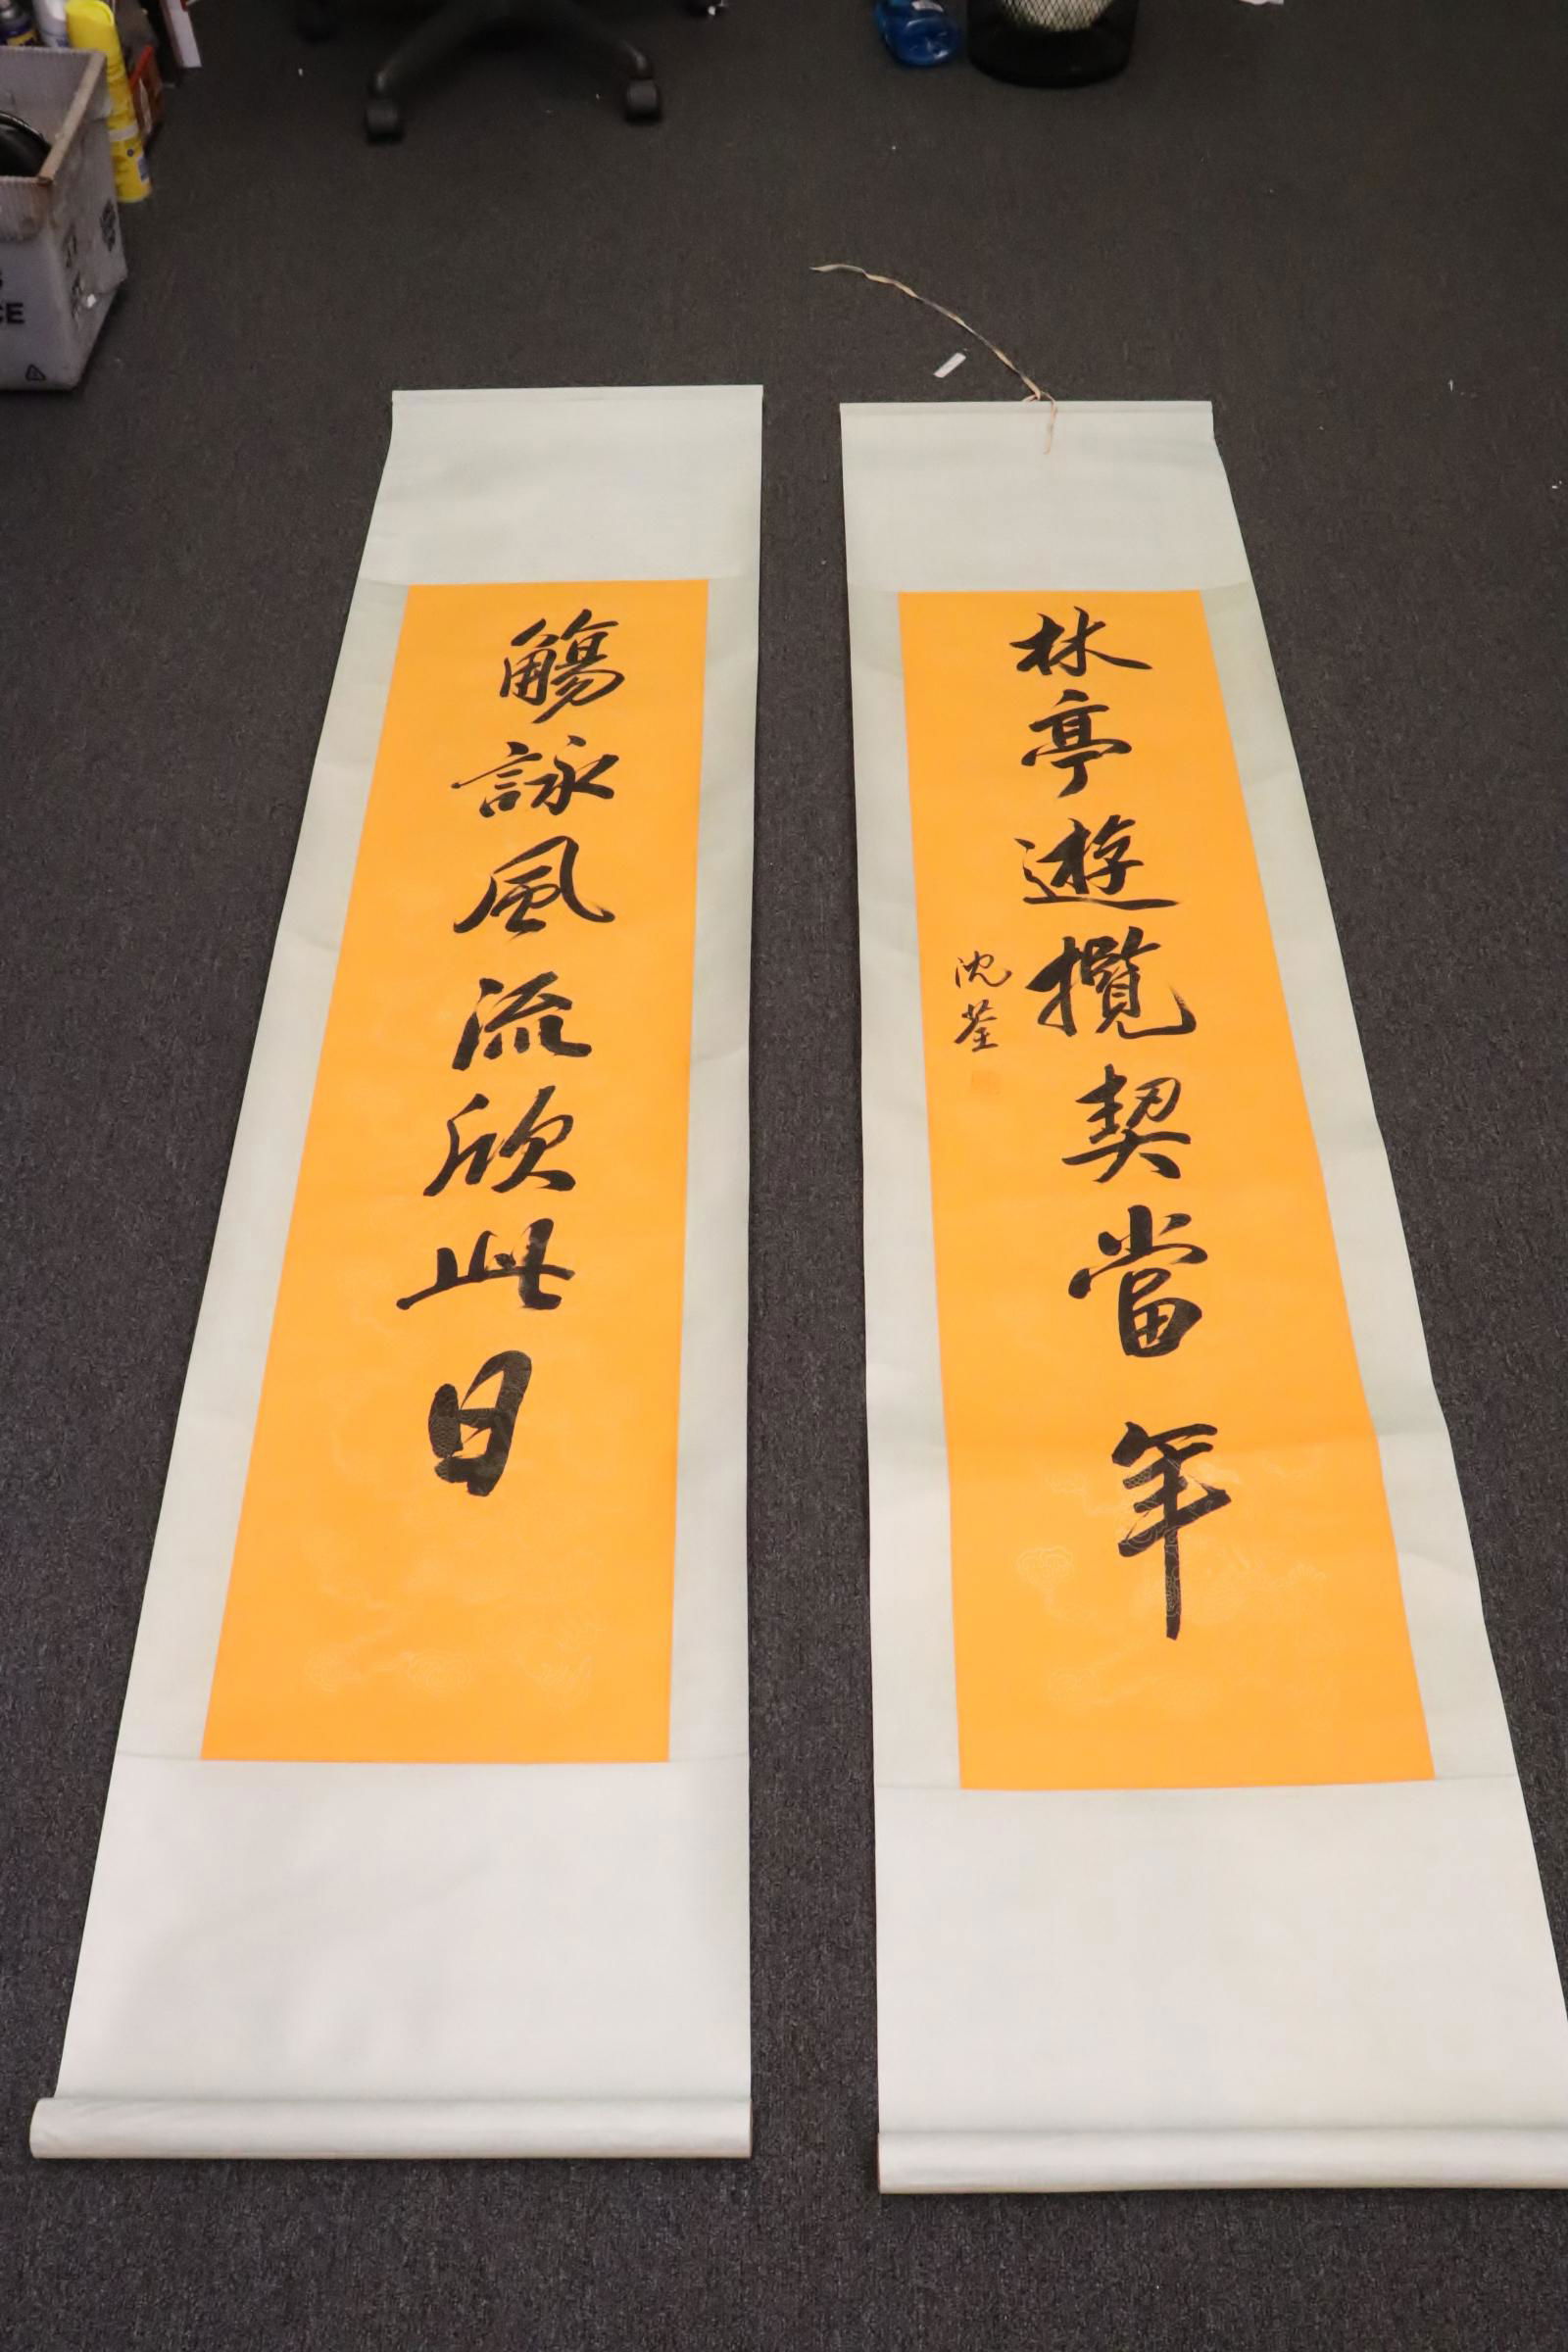 觴詠風流欣此日
林亭遊攬契當年
沈荃
CE